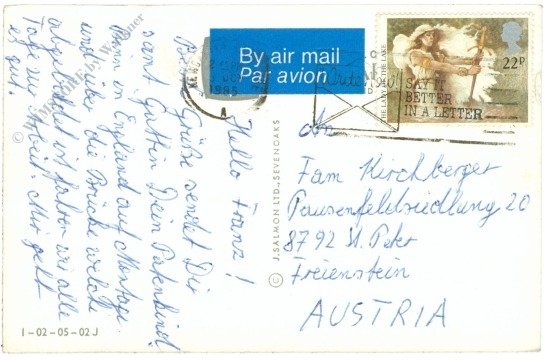 By air mail
Par avion
1985
22P
THE LADY OF THE LAKE
SAY IT
BETTER
IN A LETTER
Hello Franz!
Grüße sendet Dir
samt Gattin Dein Patenkind!
Bin in England auf Montage
und über die Brücke welche
abgebildet ist fahren wir alle
Tage zur Arbeit. Mir geht
es gut.
An
Fam Kirchberger
Pausenfeldsiedlung 20
8792 St. Peter
Freienstein
AUSTRIA
© J. SALMON LTD., SEVENOAKS
1-02-05-02 J